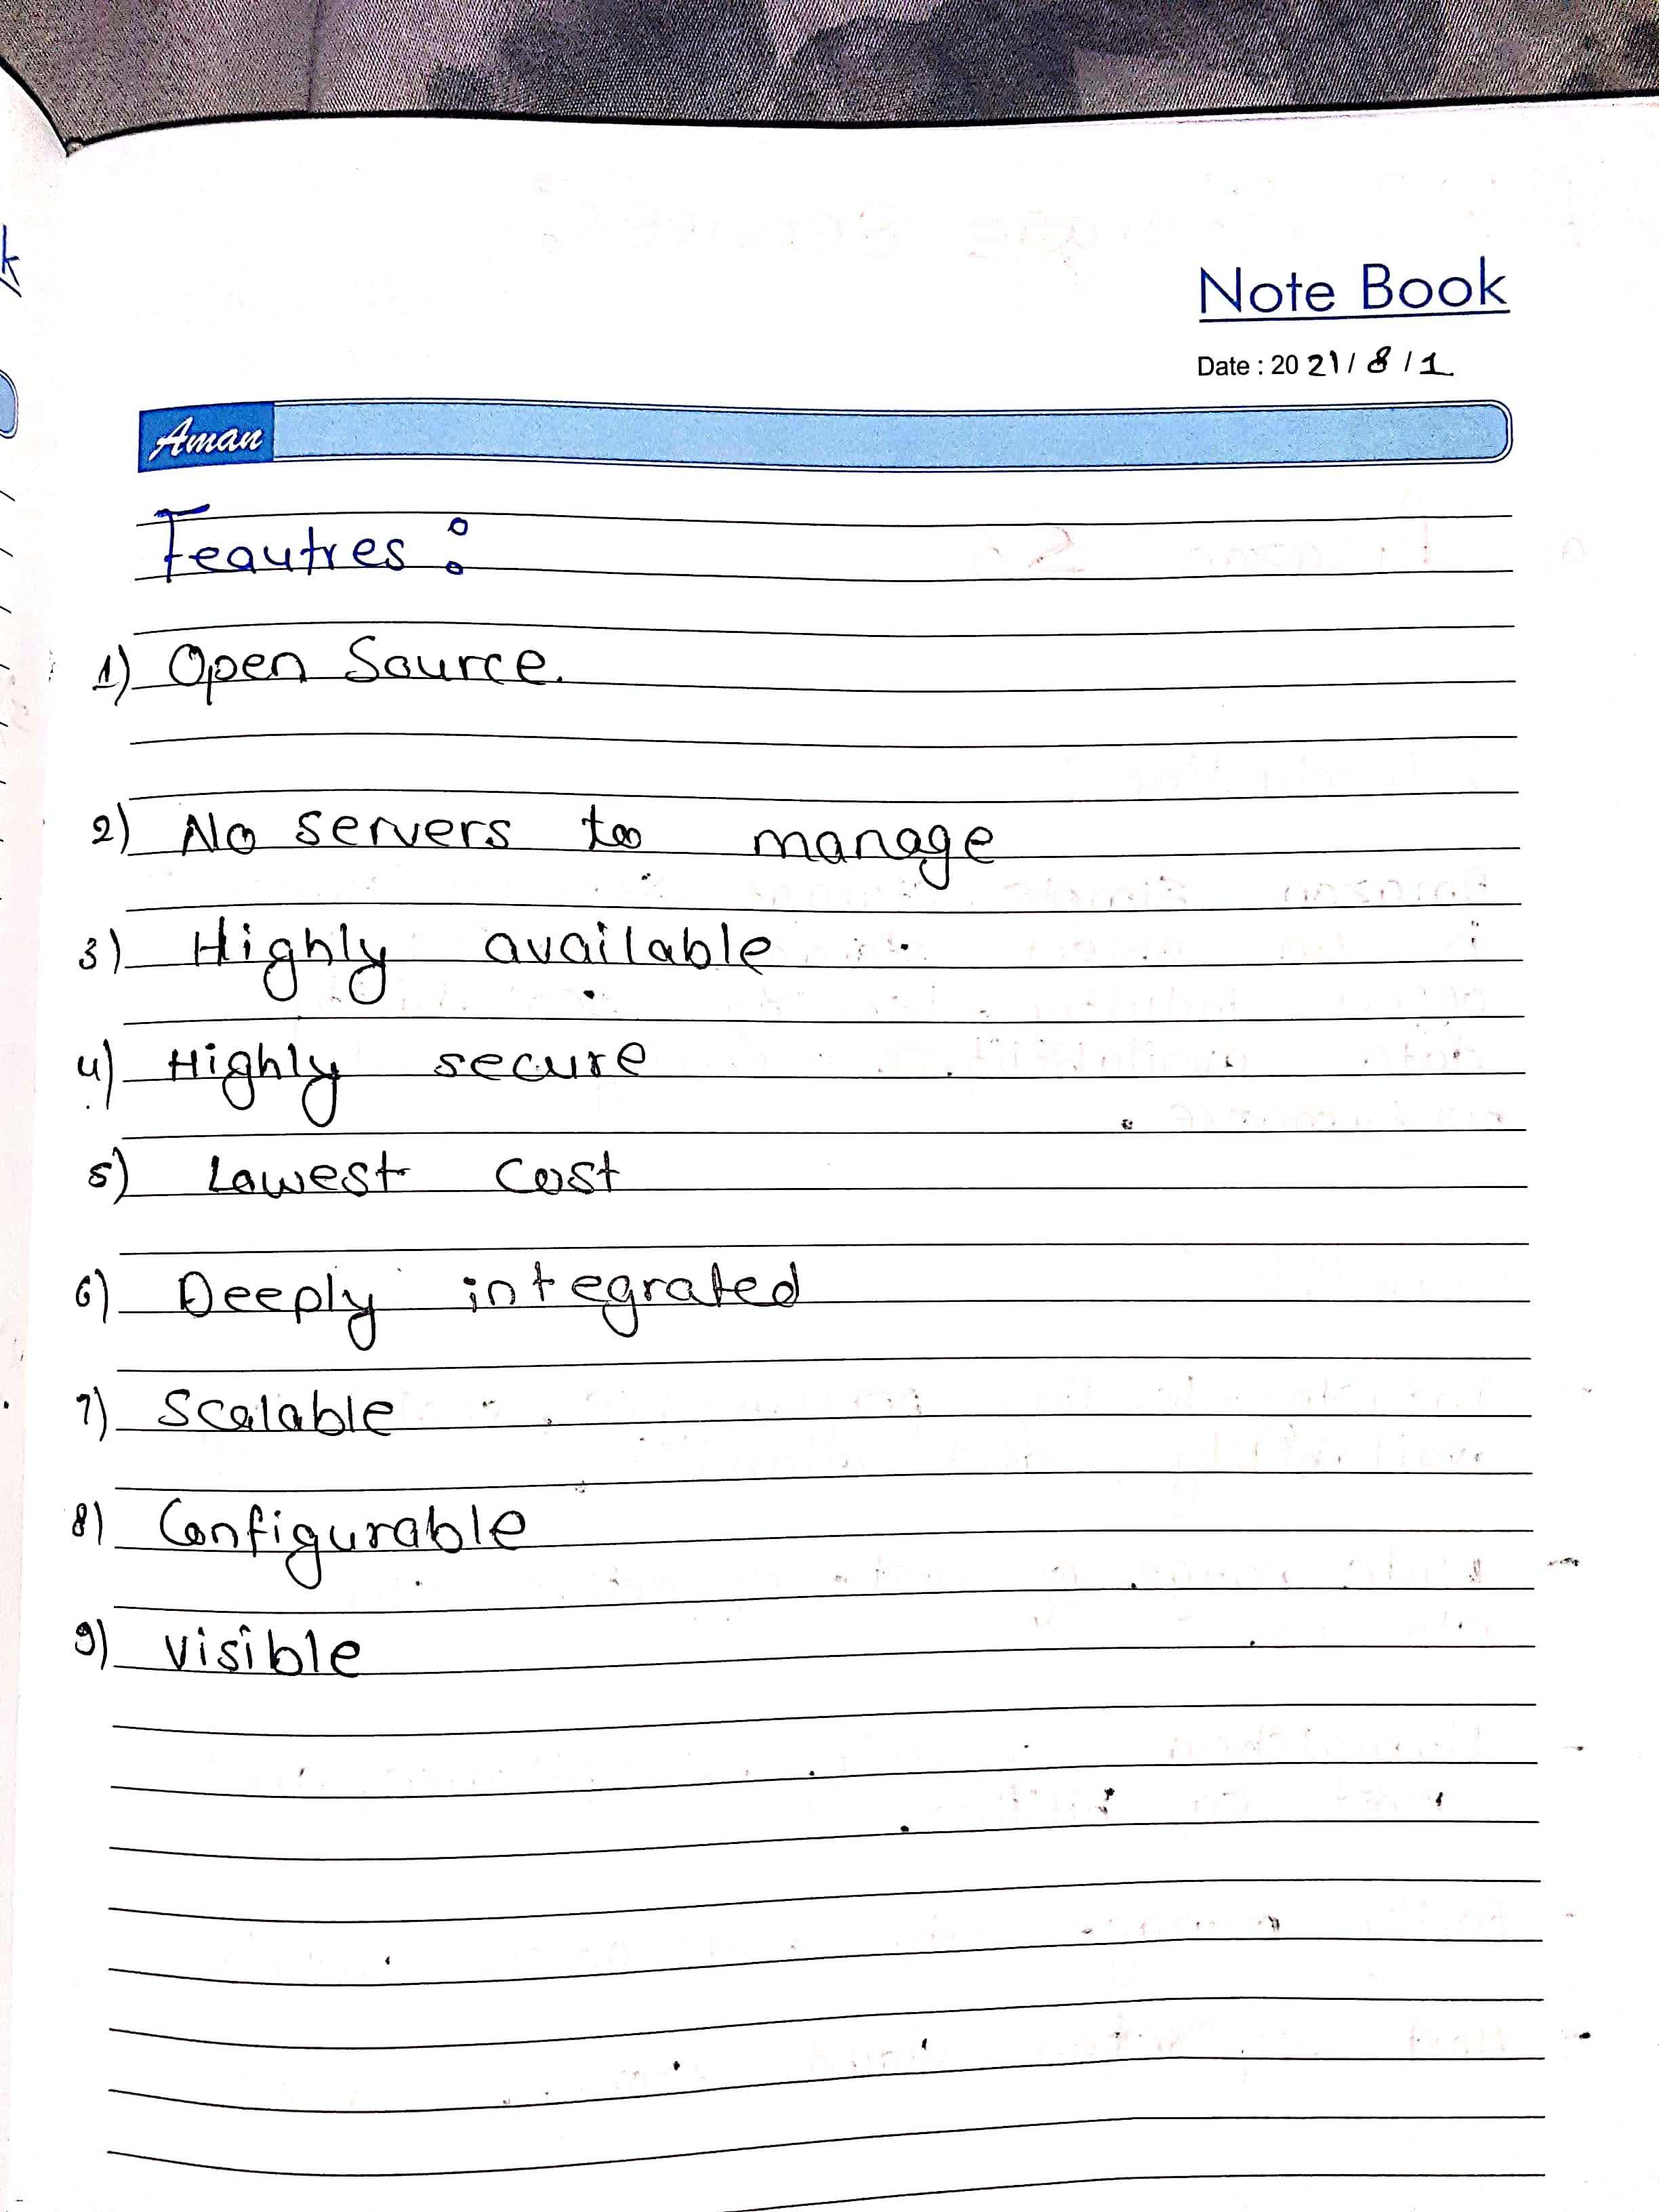 Note Book
Date : 20 21 / 8 / 1
Aman
Feautres :
1) Open Source.
2) No servers to manage
3) Highly available
4) Highly secure
5) Lowest cost
6) Deeply integrated
7) Scalable
8) Configurable
9) visible